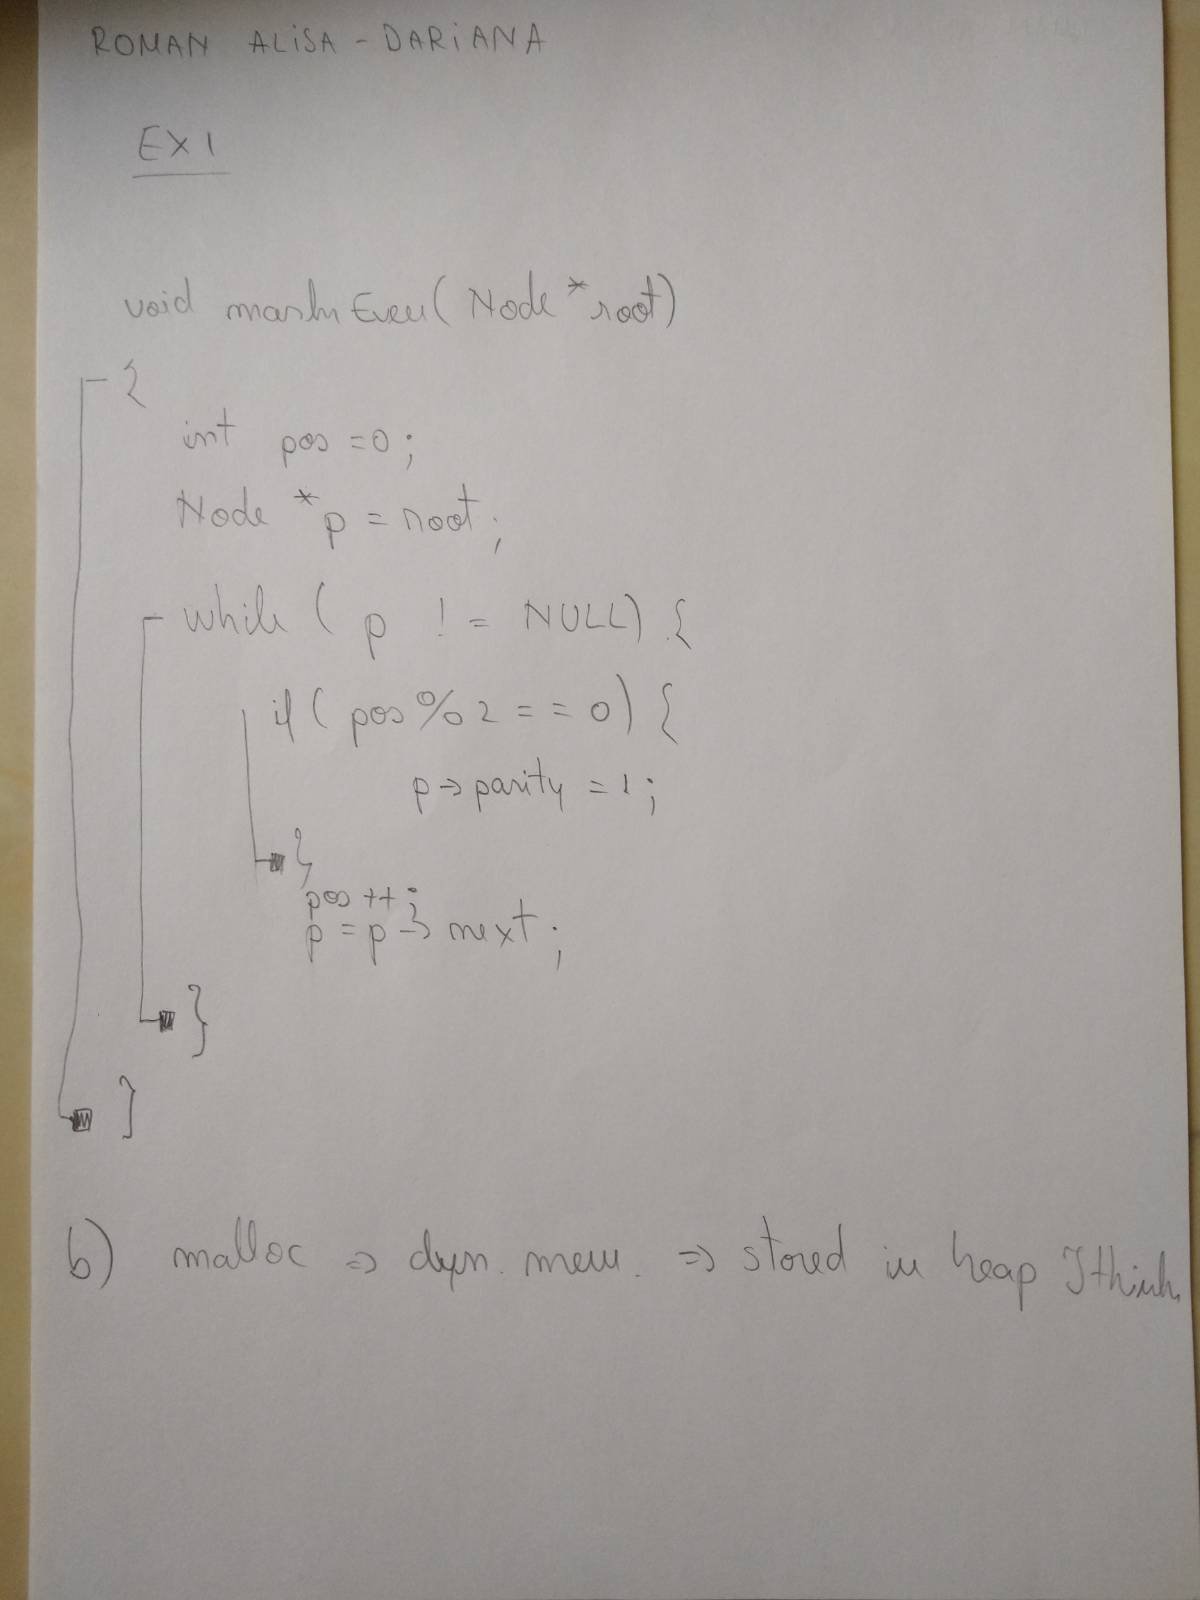 ROMAN ALISA - DARIANA
EX 1
void markEven(Node *root)
{
int pos = 0;
Node *p = root;
while ( p != NULL) {
if ( pos % 2 == 0) {
p -> parity = 1;
}
pos ++;
p = p -> next;
}
}
b) malloc => dyn. mem. => stored in heap I think